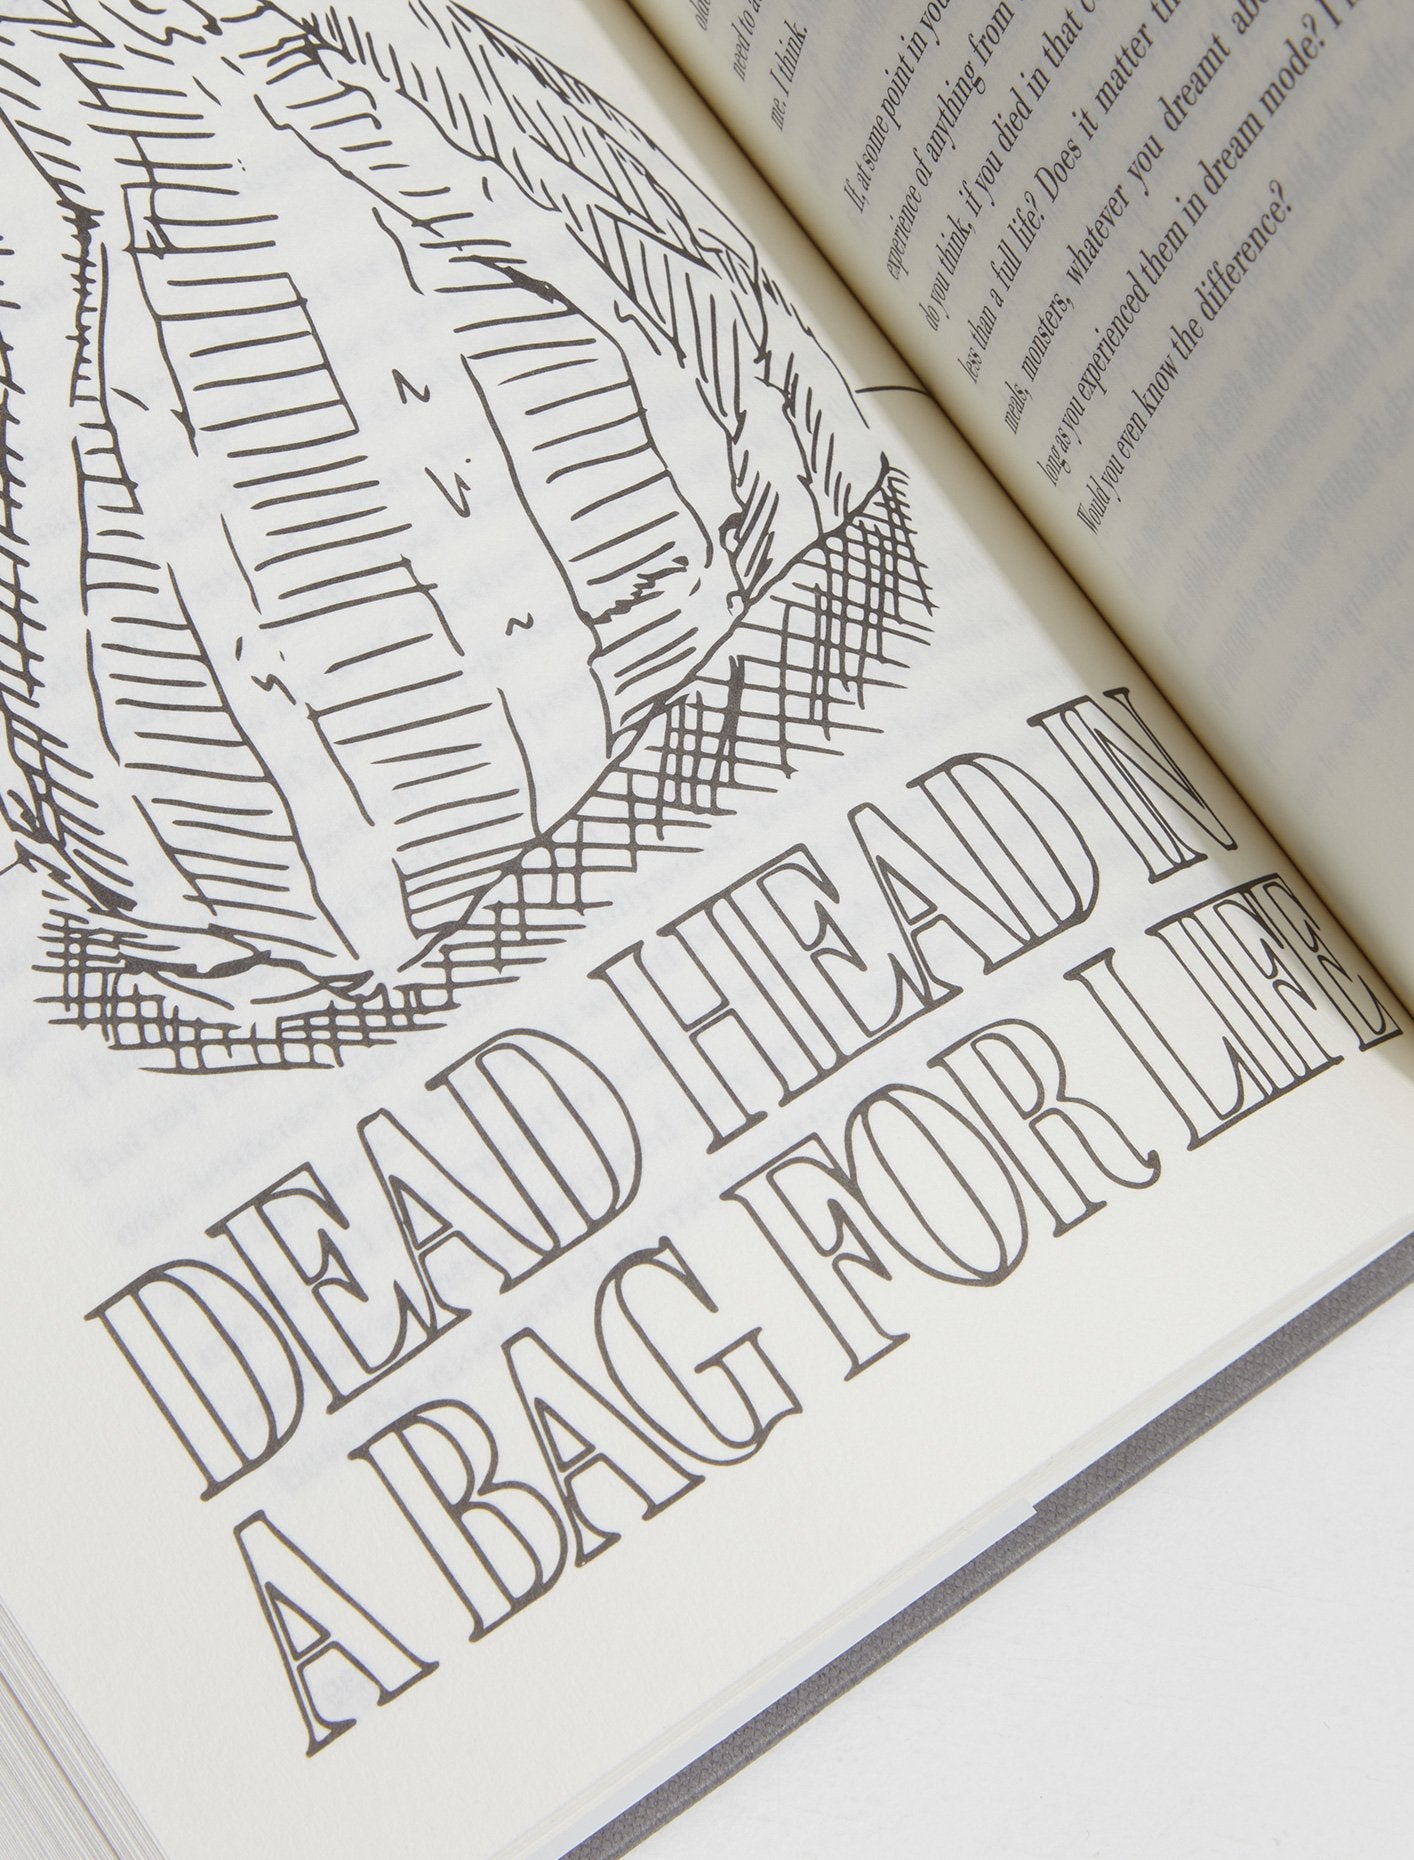 DEAD HEAD IN
A BAG FOR LIFE
need to a
me. I think.
If, at some point in you
experience of anything from
do you think, if you died in that c
less than a full life? Does it matter th
meals, monsters, whatever you dreamt abo
long as you experienced them in dream mode? I
Would you even know the difference?